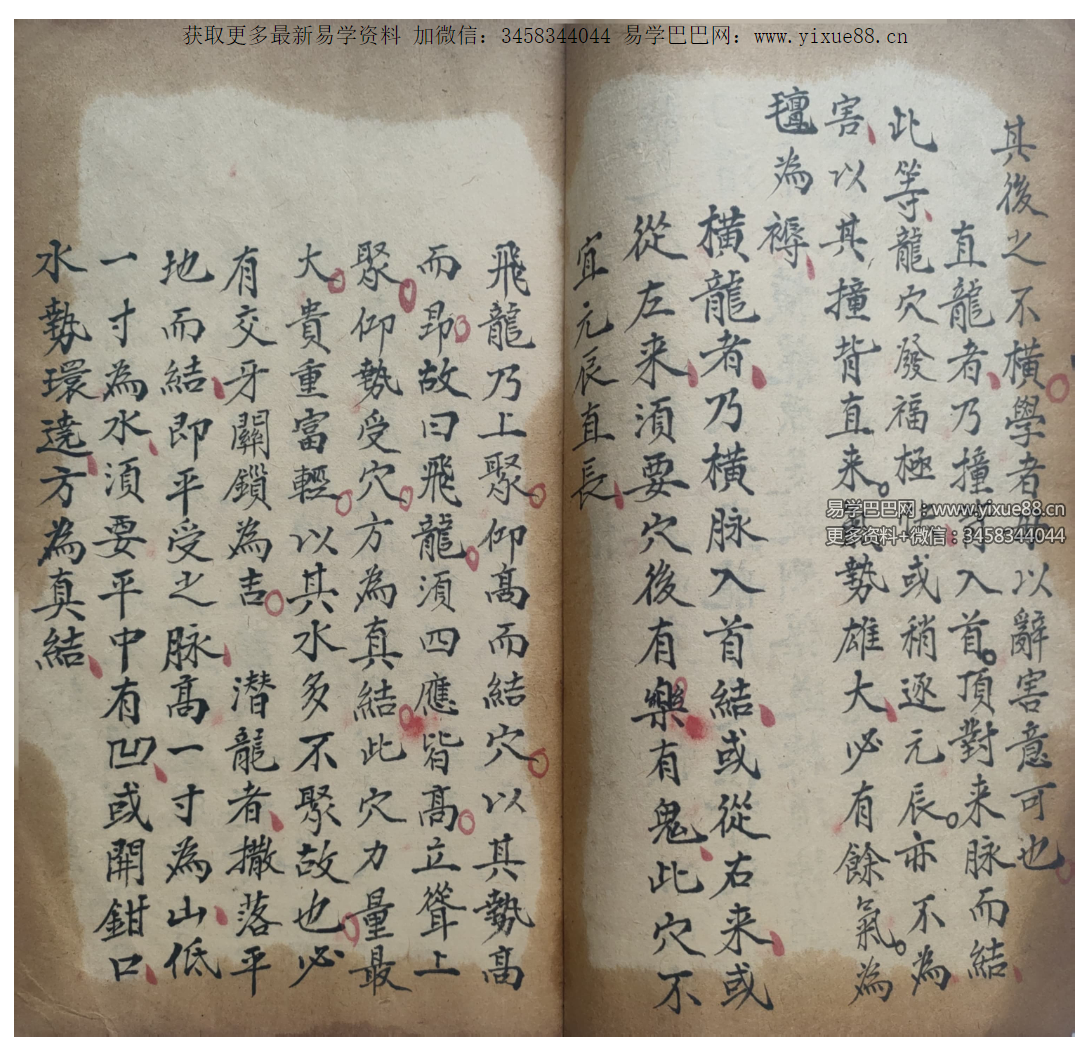 获取更多最新易学资料 加微信：3458344044 易学巴巴网：www.yixue88.cn
其後之不橫學者毋以辭害意可也
直龍者乃撞背入首頂對来脉而結
此等龍穴發福極忙或稍逐元辰亦不為
害以其撞背直来氣勢雄大必有餘氣為
氊為褥
橫龍者乃橫脉入首結或從右来或
從左来須要穴後有樂有鬼此穴不
宜元辰直長
飛龍乃上聚仰高而結穴以其勢高
而昻故曰飛龍須四應皆高立聳上
聚仰勢受穴方為真結此穴力量最
大貴重富輕以其水多不聚故也必
有交牙關鎖為吉 潛龍者撒落平
地而結即平受之脉高一寸為山低
一寸為水須要平中有凹或開鉗口
水勢環遶方為真結
易学巴巴网：www.yixue88.cn
更多资料+微信：3458344044